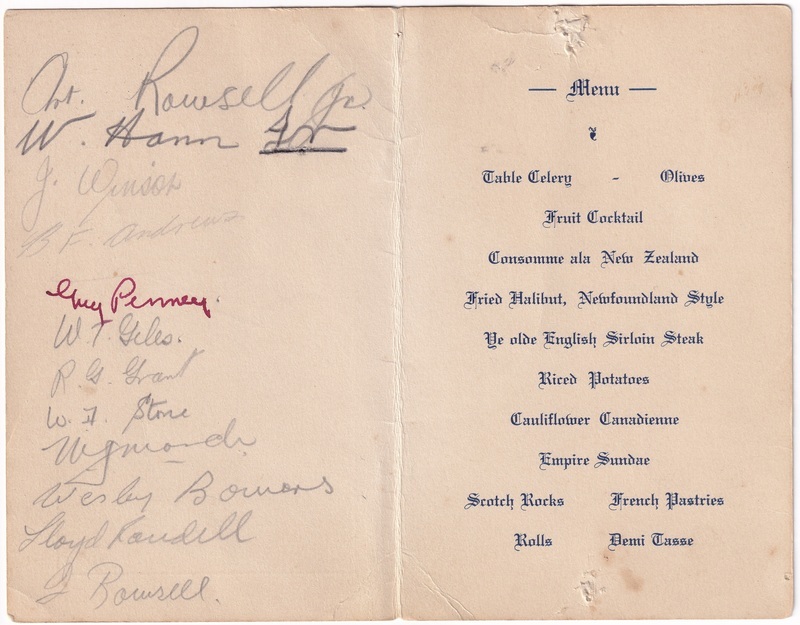 Art. Rowsell Jr.
W. Hann
J. Winsor
B F. Andrews
Guy Penney.
W. T. Giles.
R. G. Grant
W. H. Stone
Wesley Bowers
Lloyd Randell
Rowsell.
— Menu —
Table Celery - Olives
Fruit Cocktail
Consomme ala New Zealand
Fried Halibut, Newfoundland Style
Ye olde English Sirloin Steak
Riced Potatoes
Cauliflower Canadienne
Empire Sundae
Scotch Rocks French Pastries
Rolls Demi Tasse